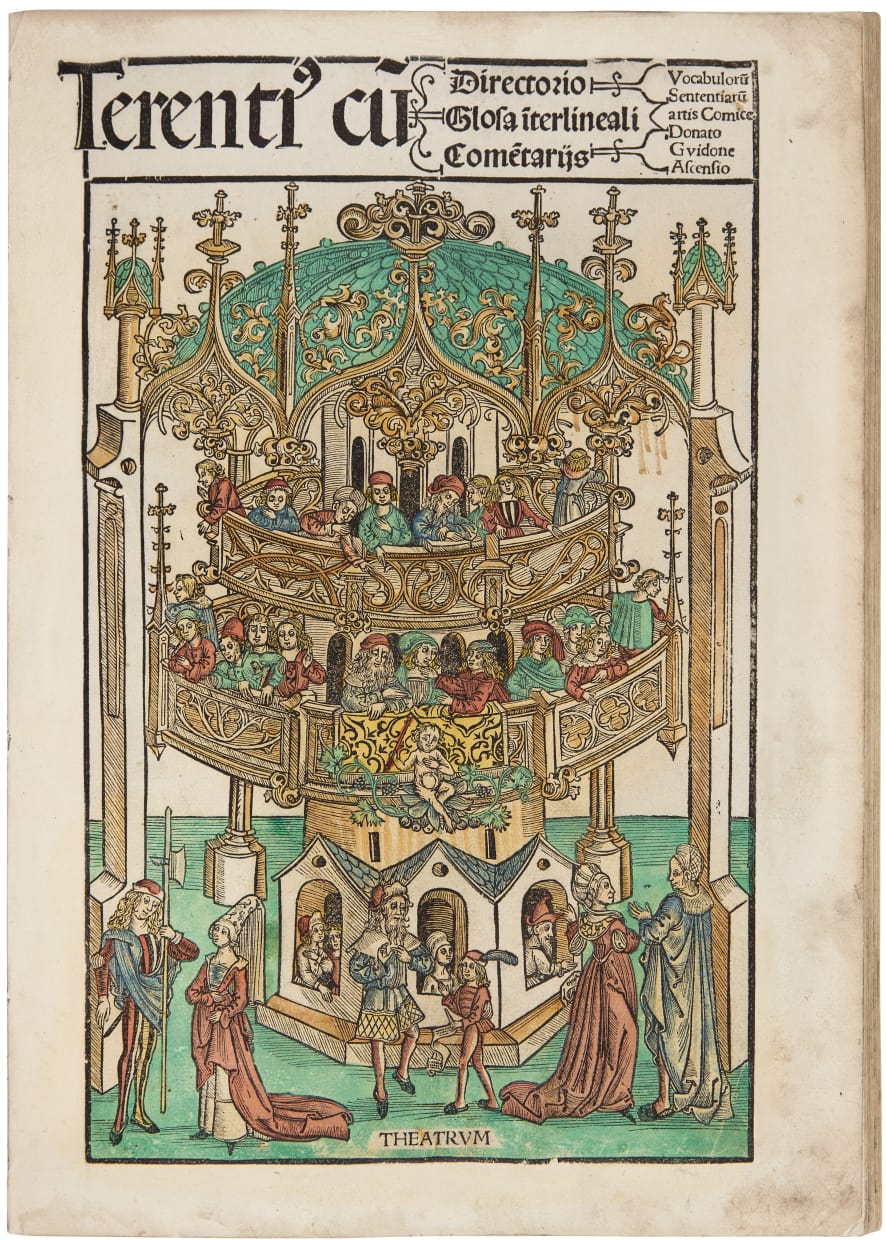 Terentiꝰ cū
Directorio
Glosa īterlineali
Comētarijs
Vocabulorū
Sententiarū
artis Comice
Donato
Gvidone
Ascensio
THEATRVM